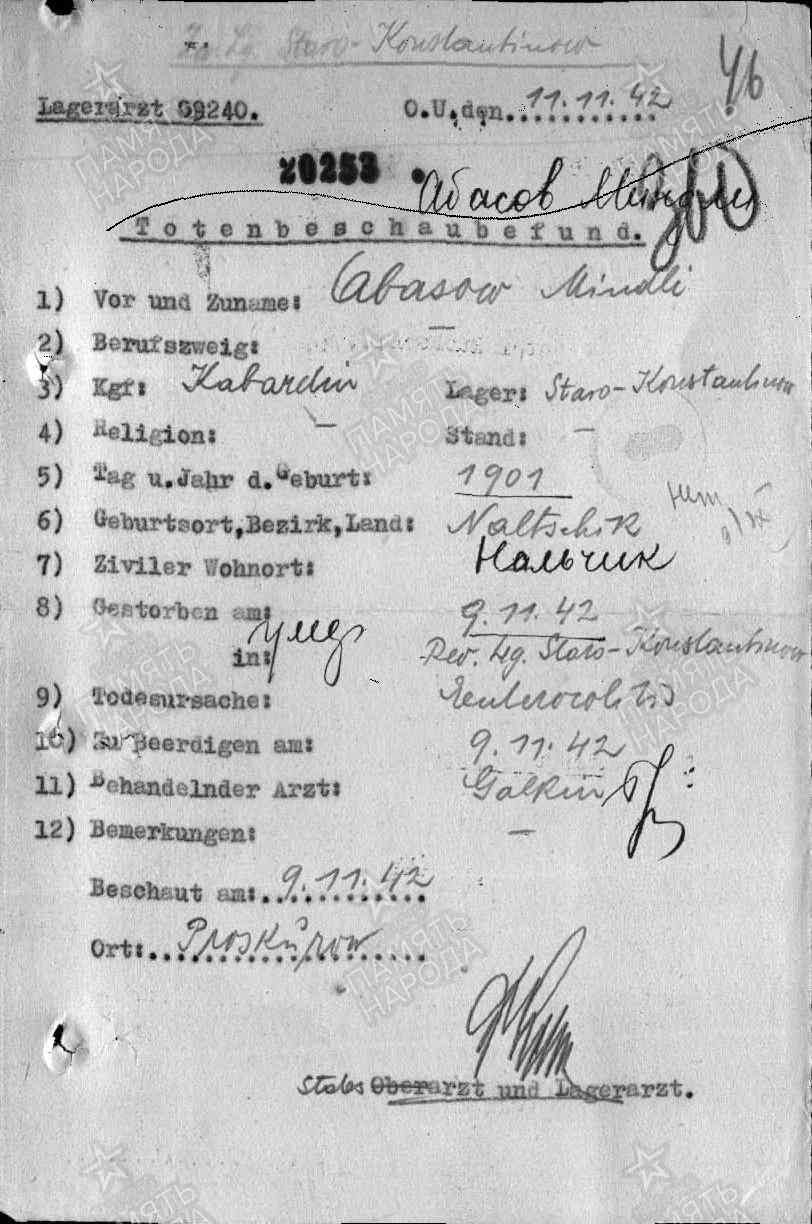 Zw. Lg. Staro-Konstantinow
46
Lagerarzt 09240. O.U.,den..11.11.42
20253 . Абасов Миндли
Totenbeschaubefund.
1) Vor und Zuname: Abasow Mindli
2) Berufszweig: —
3) Kgf: Kabardin Lager: Staro-Konstantinow
4) Religion: — Stand: —
5) Tag u.Jahr d.Geburt: 1901
6) Geburtsort,Bezirk,Land: Naltschik
7) Ziviler Wohnort: Нальчик
8) Gestorben am: 9.11.42
in: Rev. Lg. Staro-Konstantinow
9) Todesursache: Enterocolitis
10) Zu Beerdigen am: 9.11.42
11) Behandelnder Arzt: Galkin
12) Bemerkungen: —
Beschaut am:..9.11.42
Ort:..Proskurow
Stabs Oberarzt und Lagerarzt.
ПАМЯТЬ НАРОДА